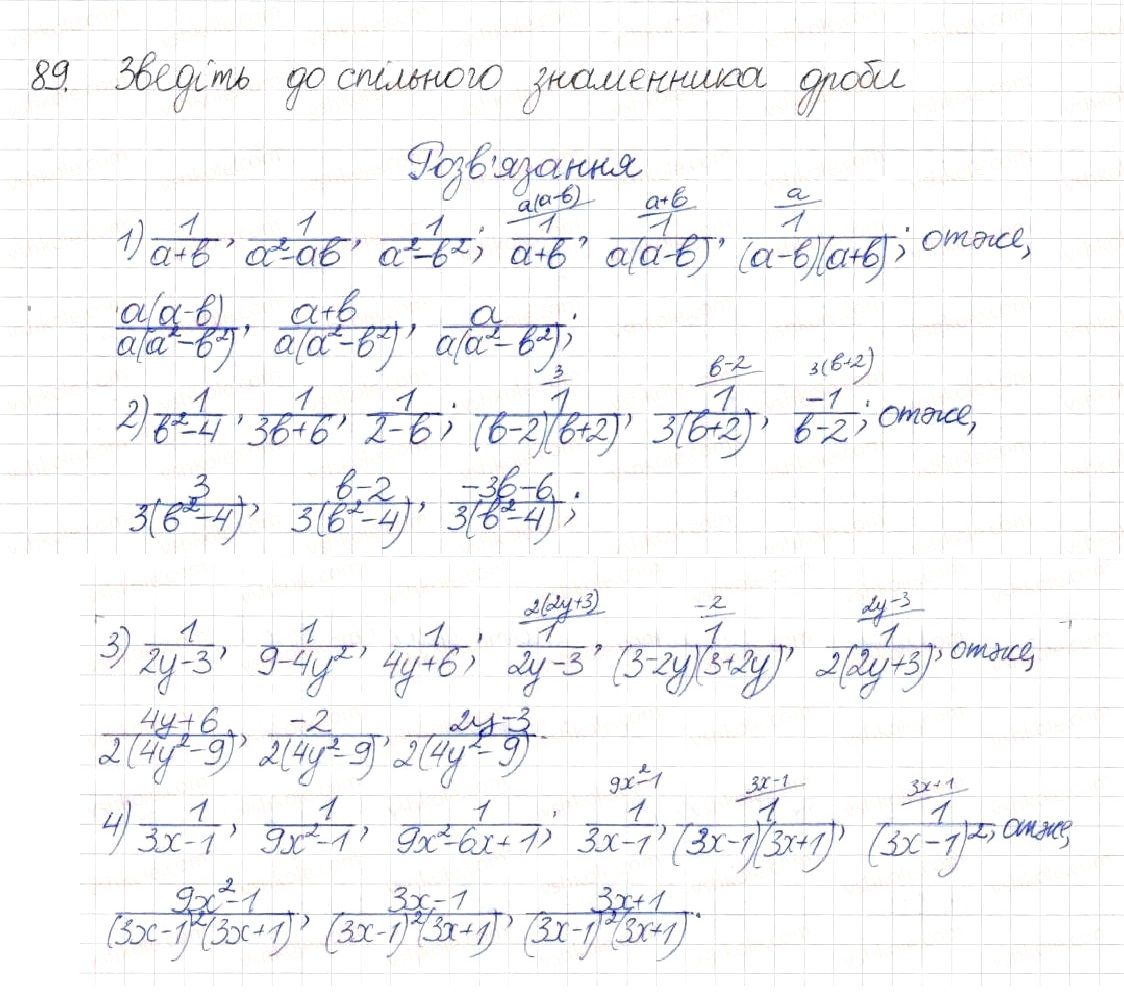 89. Зведіть до спільного знаменника дроби
Розв'язання
1) 1/(a+b), 1/(a²-ab), 1/(a²-b²); 1/(a+b) [a(a-b)], 1/(a(a-b)) [a+b], 1/((a-b)(a+b)) [a]; отже,
a(a-b)/(a(a²-b²)), (a+b)/(a(a²-b²)), a/(a(a²-b²));
2) 1/(b²-4), 1/(3b+6), 1/(2-b); 1/((b-2)(b+2)) [3], 1/(3(b+2)) [b-2], -1/(b-2) [3(b+2)]; отже,
3/(3(b²-4)), (b-2)/(3(b²-4)), (-3b-6)/(3(b²-4));
3) 1/(2y-3), 1/(9-4y²), 1/(4y+6); 1/(2y-3) [2(2y+3)], 1/((3-2y)(3+2y)) [-2], 1/(2(2y+3)) [2y-3], отже,
(4y+6)/(2(4y²-9)), -2/(2(4y²-9)), (2y-3)/(2(4y²-9)).
4) 1/(3x-1), 1/(9x²-1), 1/(9x²-6x+1); 1/(3x-1) [9x²-1], 1/((3x-1)(3x+1)) [3x-1], 1/(3x-1)² [3x+1], отже,
(9x²-1)/((3x-1)²(3x+1)), (3x-1)/((3x-1)²(3x+1)), (3x+1)/((3x-1)²(3x+1)).